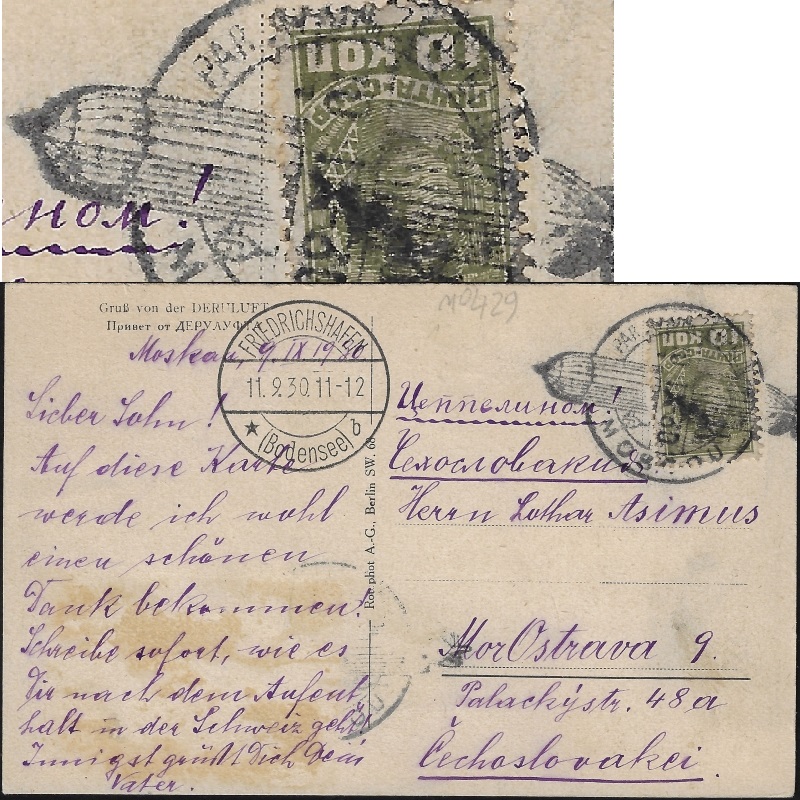 10 КОП
ПОЧТА СССР
PAR
ном!
Gruß von der DERULUFT
Привет от ДЕРУЛУФТА
Moskau, 9. IX 1930
Lieber Sohn!
Auf diese Karte
werde ich wohl
einen schönen
Dank bekommen!
Schreibe sofort, wie es
Dir nach dem Aufent
halt in der Schweiz geht!
Innigst grüßt Dich Dein
Vater.
FRIEDRICHSHAFEN
11.9.30.11-12
★ (Bodensee) b
Rotophot A.-G., Berlin SW. 68
No 429
PAR
MOSKOU
10 КОП
ПОЧТА СССР
Цеппелином!
Чехословакия
Herrn Lothar Asimus
Mor Ostrava 9.
Palackýstr. 48a
Čechoslovakei.